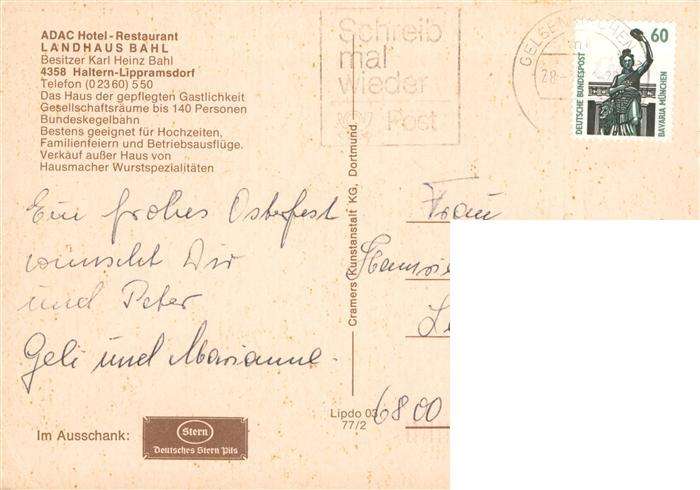 ADAC Hotel-Restaurant
LANDHAUS BAHL
Besitzer Karl Heinz Bahl
4358 Haltern-Lippramsdorf
Telefon (02360) 550
Das Haus der gepflegten Gastlichkeit
Gesellschaftsräume bis 140 Personen
Bundeskegelbahn
Bestens geeignet für Hochzeiten,
Familienfeiern und Betriebsausflüge.
Verkauf außer Haus von
Hausmacher Wurstspezialitäten
Ein frohes Osterfest
wünscht Dir
und Peter
Geli und Marianne.
Im Ausschank:
Stern
Deutsches Stern Pils
Cramers Kunstanstalt KG, Dortmund
Lipdo 03
77/2
Schreib
mal
wieder
Post
60
DEUTSCHE BUNDESPOST
BAVARIA MÜNCHEN
Frau
6800